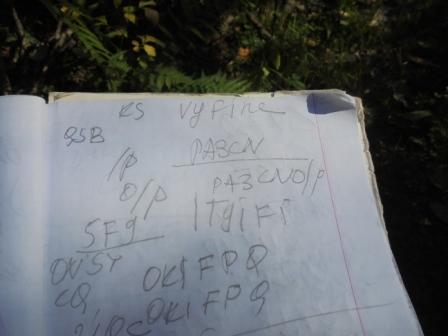 RS VyFine
QSB
/P PA3CN
0/P PA3CNO/P
SF9 1TgiFi
OK1FPQ
CQ, OK1FPQ